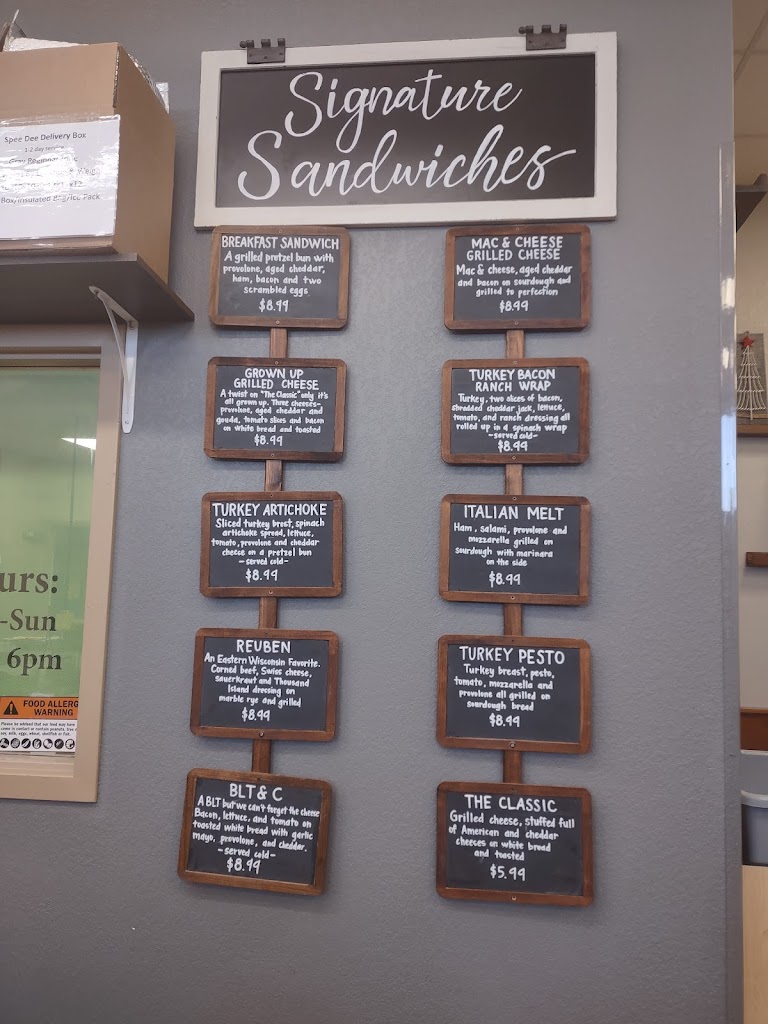 Signature
Sandwiches
BREAKFAST SANDWICH
A grilled pretzel bun with
provolone, aged cheddar,
ham, bacon and two
scrambled eggs
$8.99
GROWN UP
GRILLED CHEESE
A twist on "The Classic" only it's
all grown up. Three cheeses-
provolone, aged cheddar and
gouda, tomato slices and bacon
on white bread and toasted
$8.99
TURKEY ARTICHOKE
Sliced turkey brest, spinach
artichoke spread, lettuce,
tomato, provolone and cheddar
cheese on a pretzel bun
-served cold-
$8.99
REUBEN
An Eastern Wisconsin Favorite.
Corned beef, Swiss cheese,
sauerkraut and Thousand
Island dressing on
marble rye and grilled
$8.99
BLT & C
A BLT but we can't forget the cheese
Bacon, lettuce, and tomato on
toasted white bread with garlic
mayo, provolone, and cheddar.
-served cold-
$8.99
MAC & CHEESE
GRILLED CHEESE
Mac & cheese, aged cheddar
and bacon on sourdough and
grilled to perfection
$8.99
TURKEY BACON
RANCH WRAP
Turkey, two slices of bacon,
shredded cheddar jack, lettuce,
tomato, and ranch dressing all
rolled up in a spinach wrap
-served cold-
$8.99
ITALIAN MELT
Ham, salami, provolone and
mozzarella grilled on
sourdough with marinara
on the side
$8.99
TURKEY PESTO
Turkey breast, pesto,
tomato, mozzarella and
provolone all grilled on
sourdough bread
$8.99
THE CLASSIC
Grilled cheese, stuffed full
of American and cheddar
cheeses on white bread
and toasted
$5.99
Spee Dee Delivery Box
1-2 day service
Box/Insulated Bag/Ice Pack
urs:
-Sun
6pm
FOOD ALLERG
WARNING
Please be advised that our food may have
come in contact or contain peanuts, tree
soy, milk, eggs, wheat, shellfish or fish.